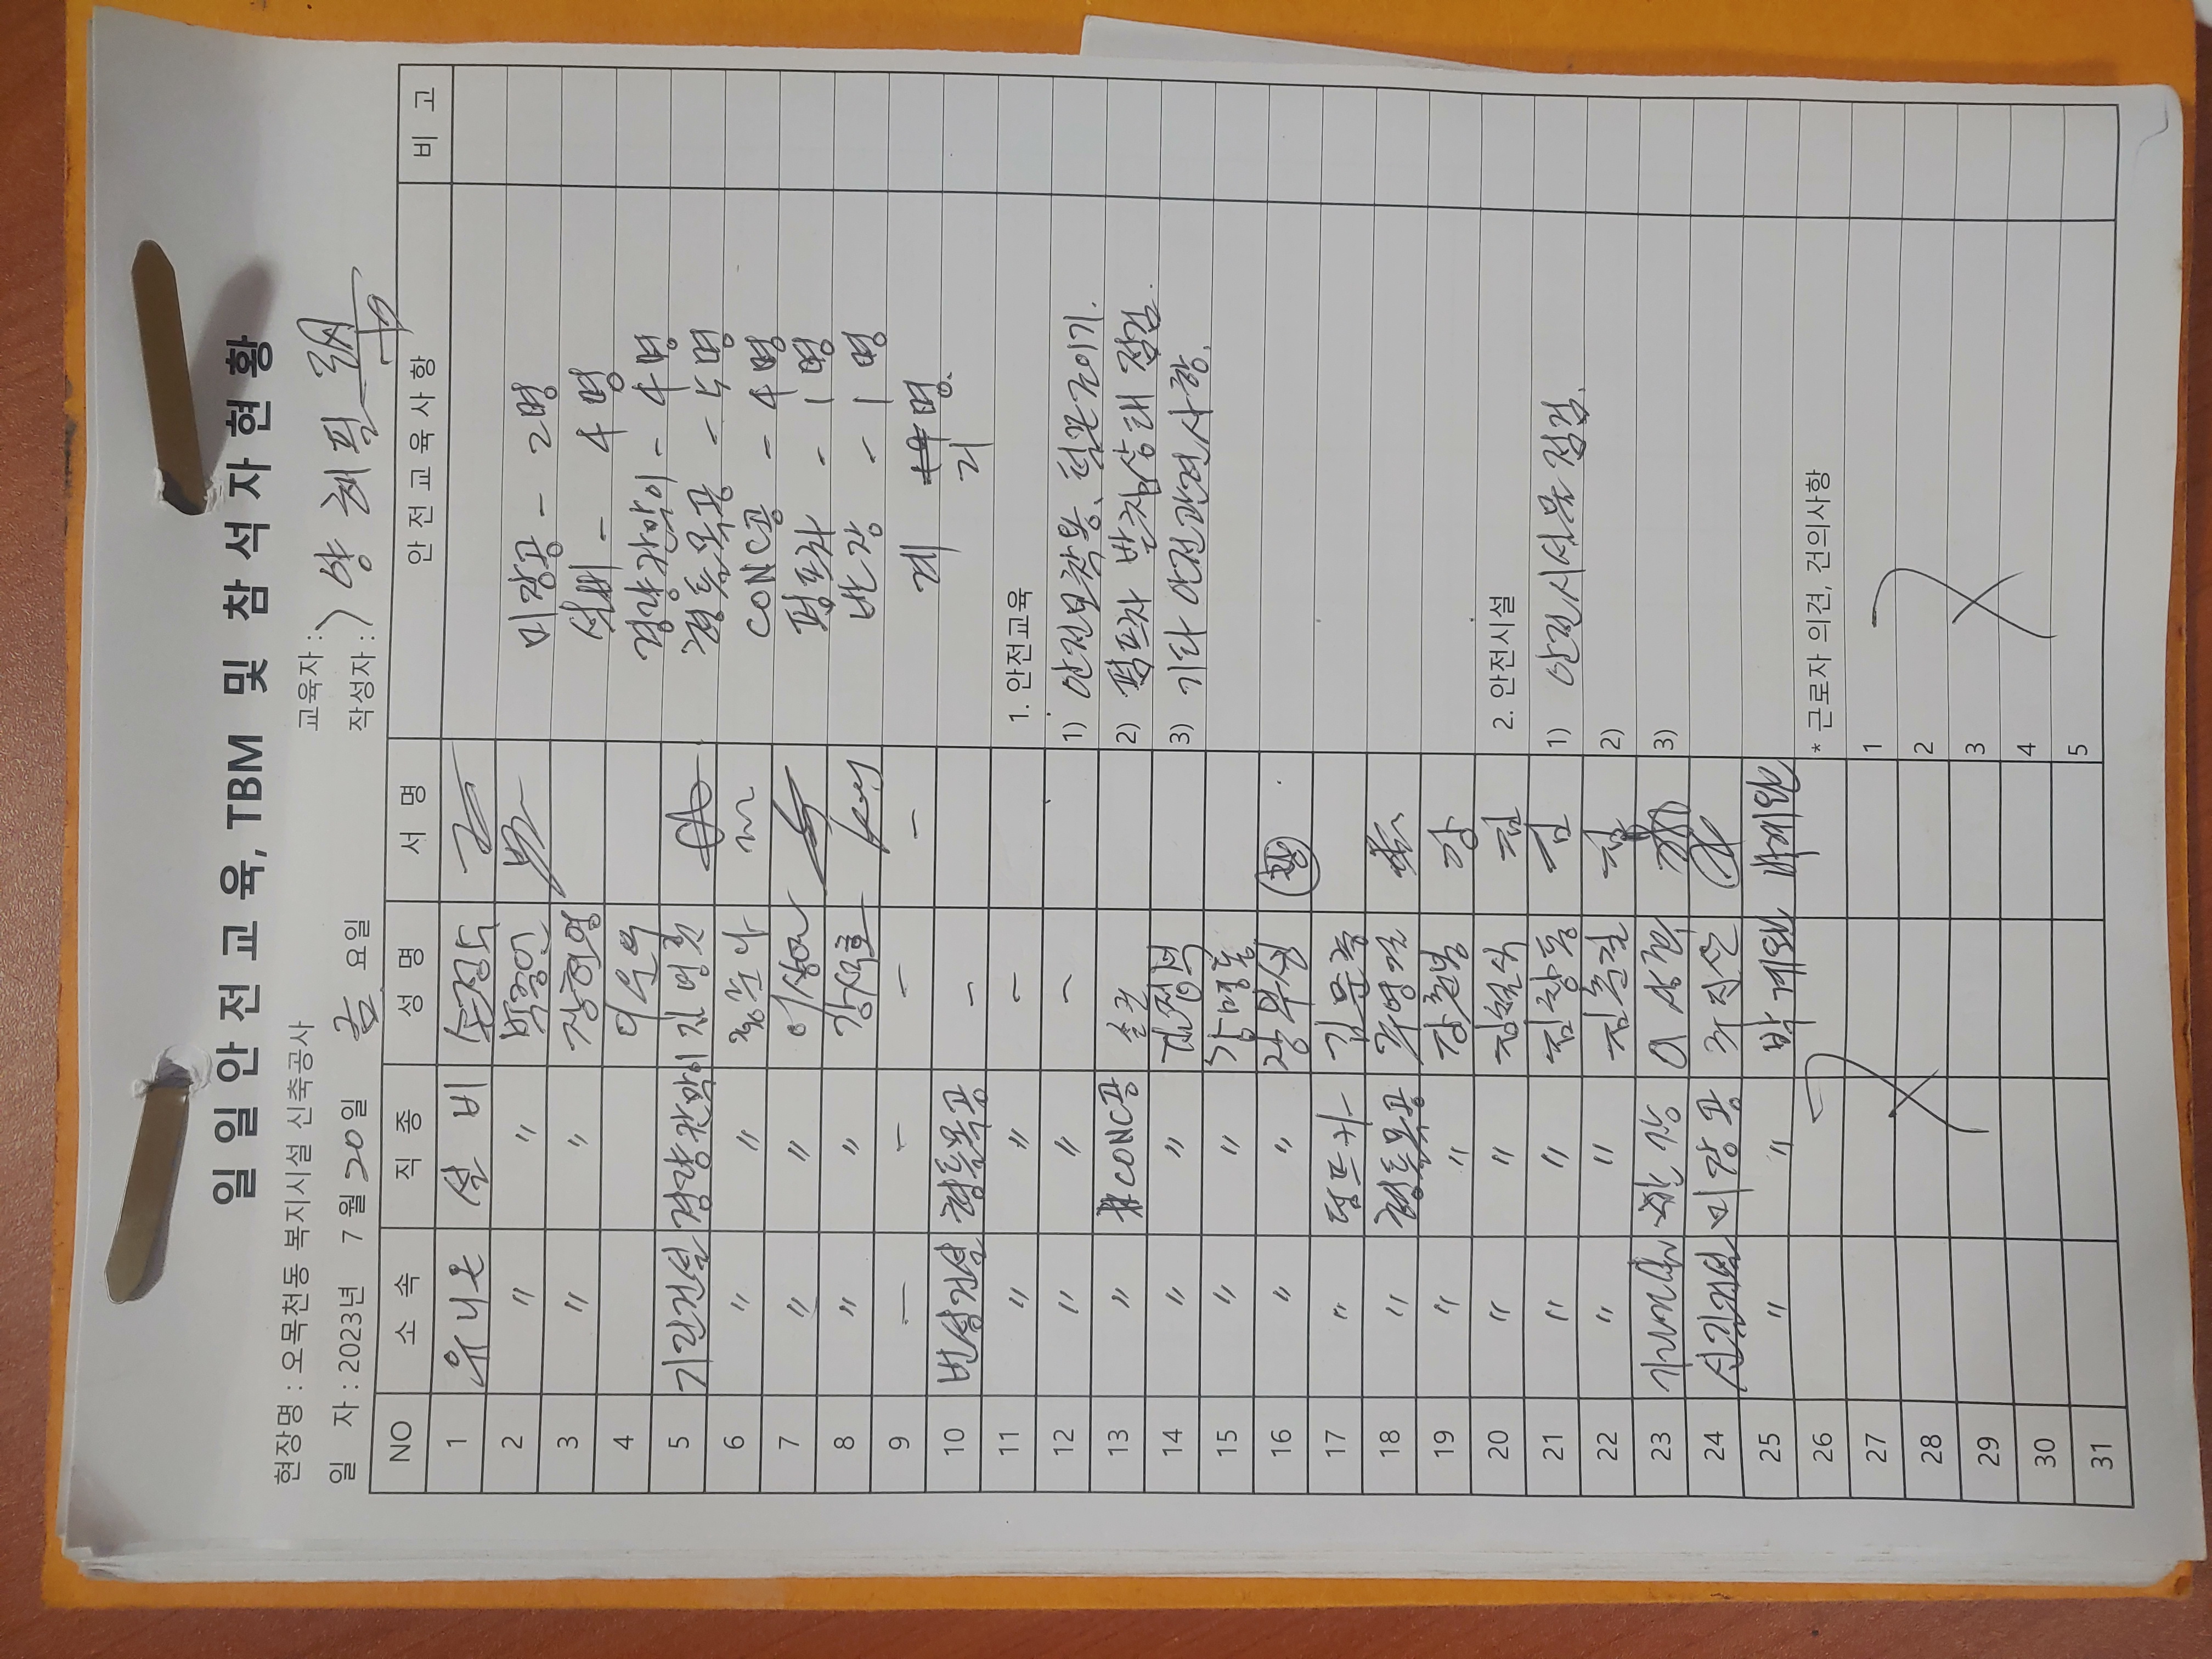 일일안전교육, TBM 및 참석자현황
현장명 : 오목천동 복지시설 신축공사
교육자 :
일 자 : 2023년 7월 20일 금 요일
작성자 : 양해필
NO 소속 직종 성명 서명 안전교육사항 비고
1 유니온 설비 손정수
2 〃 〃 박종언 미장공 - 2명
3 〃 〃 장현영 설비 - 4명
4 경량칸막이 - 4명
5 기린건설 경량칸막이 형틀목공 - 5명
6 〃 〃 CONC공 - 4명
7 〃 〃 이상언 펌프차 - 1명
8 〃 〃 강석호 반장 - 1명
9 - - - - 계 19명
21
10 형틀목공 -
11 〃 〃 - 1. 안전교육
12 〃 〃 - 1) 안전모착용, 턱끈조이기.
13 〃 CONC공 2) 펌프차 받침상태 점검.
14 〃 〃 김정석 3) 기타 안전관련사항.
15 〃 〃 강명동
16 〃 〃
17 〃 펌프카 김문중
18 〃 형틀목공 주영길
19 〃 〃
20 〃 〃 김철식 김 2. 안전시설
21 〃 〃 김창동 김 1) 안전시설물 점검.
22 〃 〃 김춘길 김 2)
23 기린건설 반장 3)
24 신길건설 미장공
25 〃 〃 박계완 박계완
26 * 근로자 의견, 건의사항
27 1
28 2
29 3
30 4
31 5